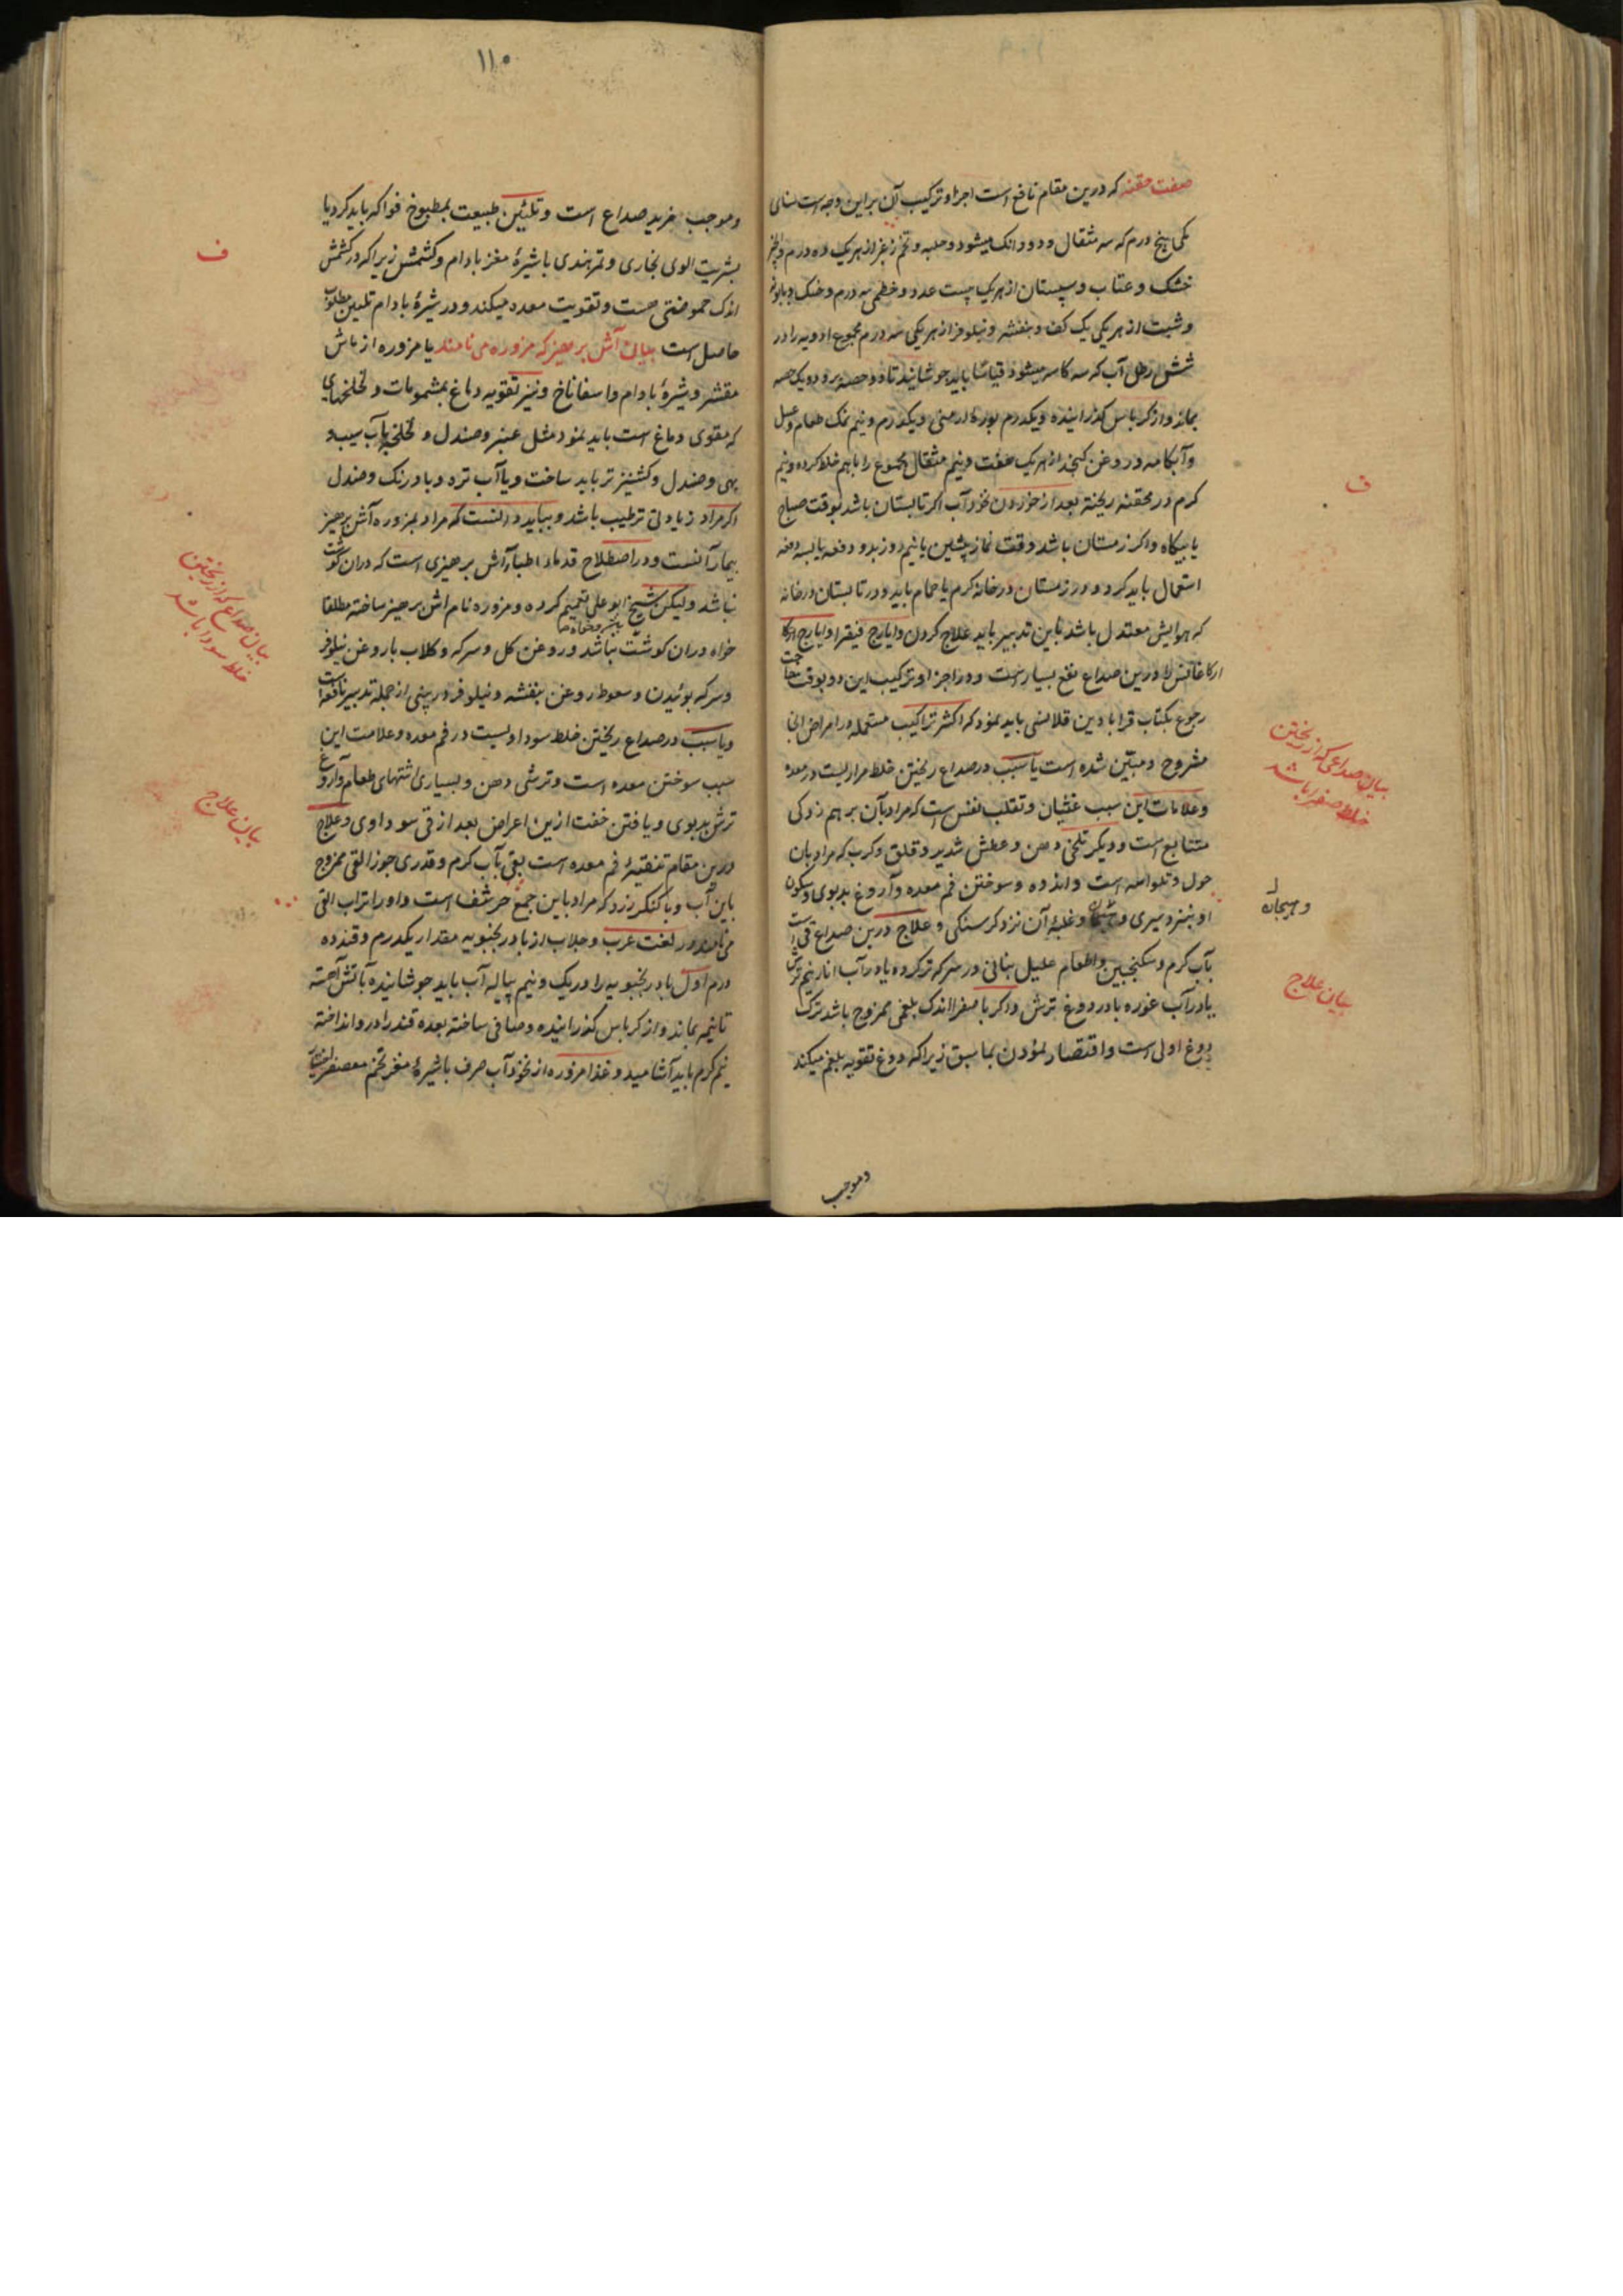 صفت حقنه که درین مقام نافع است اجزا و ترکیب آن براین وجه است سنای
مکی پنج درم که سه مثقال و دو دانک میشود و حلبه و تخم از هریک ده درم و انجیر
خشک و عناب و سپستان از هریک بیست عدد و خطمی سه درم و خسک و بابونه
و شبت از هر یکی یک کف و بنفشه و نیلوفر از هریکی سه درم مجموع ادویه را در
شش رطل آب که سه کاسه میشود قیاسا باید جوشانید تا دو حصه برود و یک حصه
بماند و از کرباس گذرانیده و یکدرم بوره ارمنی و یکدرم و نیم نمک طعام و عسل
و آبکامه و روغن کنجد از هریک هفت و نیم مثقال مجموع را باهم خلط کرده و نیم
کرم در محقنه ریخته بعد از خوردن نخود آب اکر تابستان باشد بوقت صباح
یا بیکاه و اکر زمستان باشد وقت نماز پیشین یا نیم روز بدو دفعه یا بسه دفعه
استعمال باید کرد و در زمستان در خانه کرم یا حمام باید و در تابستان در خانه
که هوایش معتدل باشد باین تدبیر باید علاج کردن و ایارج فیقرا و ایارج
ارکاغانیس را درین صداع نفع بسیار است و در اجزا و ترکیب این دو بوقت حاجت
رجوع بکتاب قرابادین قلانسی باید نمود که اکثر تراکیب مستعمله در امراض آنجا
مشروح و مبین شده است یا سبب در صداع ریختن خلط مراریست در معده
و علامات این سبب غشیان و تقلب نفس است که مراد بآن برهم زدکی
متتابع است و دیکر تلخی دهن و عطش شدید و قلق و کرب که مراد بآن
حول و تلواسه است و اندوه و سوختن فم معده و آروغ بدبوی و سکون
او بنزد سیری و غلبه آن نزد کرسنکی و علاج درین صداع قی است
بآب کرم و سکنجبین و اطعام علیل بنانی در سرکه تر کرده یا در آب انار نیم ترش
یا در آب غوره یا در دوغ ترش و اکر با صفرا اندک بلغمی ممزوج باشد ترک
دوغ اولی است و اقتصار نمودن بما سبق زیرا که دوغ تقویه بلغم میکند
وموجب
ف
بیان صداعی که از ریختن
خلط صفرا باشد
وهیجان
بیان علاج
۱۱۰
وموجب مزید صداع است و تلئین طبیعت بمطبوخ فواکه باید کرد یا
بشربت آلوی بخاری و تمرهندی با شیرهٔ مغز بادام و کشمش زیرا که در کشمش
اندک حموضتی هست و تقویت معده میکند و در شیرهٔ بادام تلیین مطلوب
حاصل است بیان آش پرهیز که مزوره می نامند یا مزوره از ماش
مقشر و شیرهٔ بادام و اسفاناخ و نیز تقویه دماغ بمشمومات و لخلخهای
که مقوی دماغ است باید نمود مثل عنبر و صندل و لخلخه بآب سیب و
بهی و صندل و کشنیز تر باید ساخت و یا آب تره و بادرنک و صندل
اکر مراد زیادتی ترطیب باشد و بباید دانست که مراد بمزوره آش پرهیز
بیمار آنست و در اصطلاح قدماء اطبا آش پرهیزی است که دران کوشت
نباشد ولیکن شیخ ابوعلی تعمیم کرده و مزوره نام آش پرهیز ساخته مطلقا
خواه دران کوشت نباشد و روغن کل و سرکه و کلاب با روغن نیلوفر
و سرکه بوئیدن و سعوط روغن بنفشه و نیلوفر در بینی از جمله تدبیر نافعه است
و یا سبب در صداع ریختن خلط سوداویست در فم معده و علامت این
سبب سوختن معده است و ترشی دهن و بسیاری اشتهای طعام و آروغ
ترش بدبوی و یافتن خفت ازین اعراض بعد از قی سوداوی و علاج
درین مقام تنقیهٔ فم معده است بقی بآب کرم و قدری جوز القی ممزوج
باین آب و یا کنکرزد که مراد باین صمغ حرشف است و او را تراب القی
می نامند در لغت عرب و جلاب از بادرنجبویه مقدار یکدرم و قند ده
درم اول بادرنجبویه را در یک و نیم پیاله آب باید جوشانیده بآتش آهسته
تا نیمه بماند و از کرباس گذرانیده و صافی ساخته بعده قند را درو انداخته
نیم کرم باید آشامید و غذا مزوره از نخود آب صرف با شیرهٔ مغز تخم معصفر
ف
بیان صداع که از ریختن
خلط سودا باشد
بیان علاج